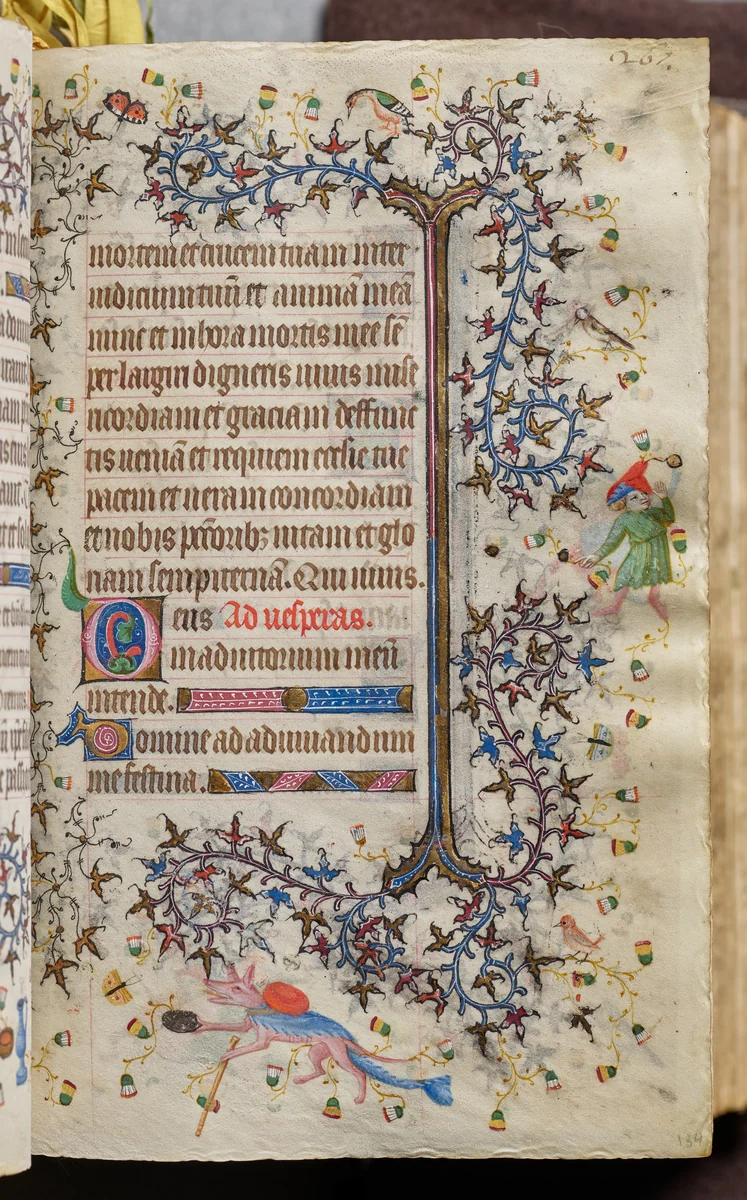 267.
mortem et crucem tuam inter
iudicium tuū et animā meā
nunc et in hora mortis mee sē
per largiri digneris uiuis mise
ricordiam et graciam deffunc
tis ueniā et requiem ecclie tue
pacem et ueram concordiam
et nobis pctōribꝫ uitam et glo
riam sempiternā. Qui uiuis.
Deus Ad uesperas.
in adiutorium meū
intende.
Domine ad adiuuandum
me festina.
134